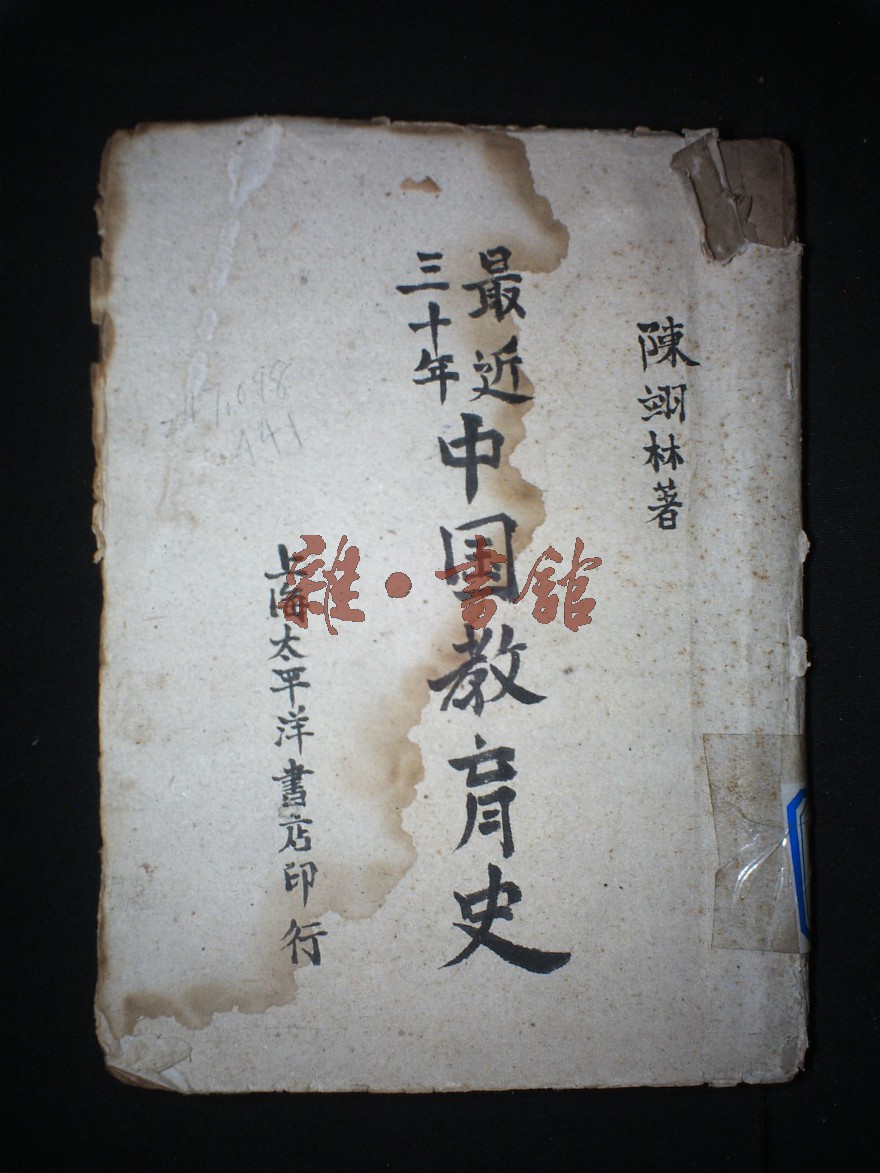 陳翊林著
最近
三十年
中国教育史
上海太平洋書店印行
雜·書館